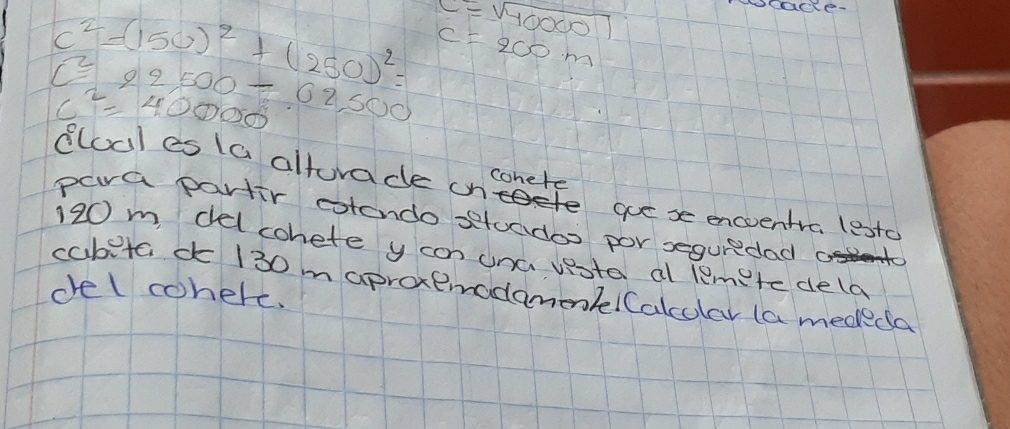 C = √40000
C = 200 m
C² = (150)² + (250)² =
C² = 22,500 - 62,500
C² = 40000
¿Cual es la altura de un cohete que se encuentra listo
para partir estando situados por seguridad a
120 m, del cohete y con una vista al limite de la
cabita de 130 m aproximadamente. Calcular la medida
del cohete.